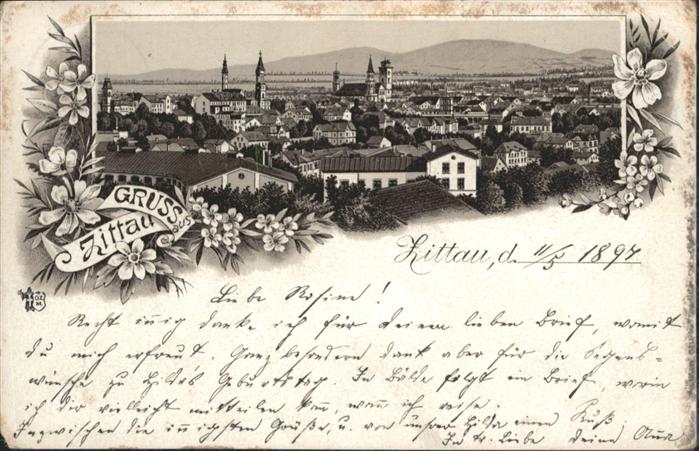 GRUSS aus
Zittau
Zittau, d. 11/5 1897
Liebe Rosine!
Recht innig danke ich für deinen lieben Brief, womit
du mich erfreut. Ganz besondern dank aber für die Segens-
wünsche zu Hilda's Geburtstag. In Bälde folgt ein Brief, worin
ich dir vielleicht mitteilen kann, wann ich reise.
Inzwischen die innigsten Grüße, u. von unsrer Hilda einen Kuß.
In tr. Liebe deine